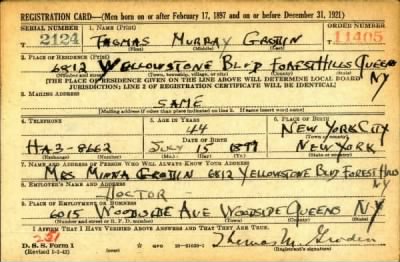 REGISTRATION CARD—(Men born on or after February 17, 1897 and on or before December 31, 1921)
SERIAL NUMBER 1. NAME (Print) ORDER NUMBER
2124 THOMAS MURRAY 11405
(First) (Middle) (Last)
2. PLACE OF RESIDENCE (Print)
6812 YELLOWSTONE BLVD FOREST HILLS QUEENS NY
(Number and street) (Town, township, village, or city) (County) (State)
[THE PLACE OF RESIDENCE GIVEN ON THE LINE ABOVE WILL DETERMINE LOCAL BOARD
JURISDICTION; LINE 2 OF REGISTRATION CERTIFICATE WILL BE IDENTICAL]
3. MAILING ADDRESS
SAME
[Mailing address if other than place indicated on line 2. If same insert word same]
4. TELEPHONE 5. AGE IN YEARS 6. PLACE OF BIRTH
44 NEW YORK CITY
DATE OF BIRTH (Town or county)
HA3-8662 JULY 15 1897 NEW YORK
(Exchange) (Number) (Mo.) (Day) (Yr.) (State or country)
7. NAME AND ADDRESS OF PERSON WHO WILL ALWAYS KNOW YOUR ADDRESS
MRS 6812 YELLOWSTONE BLVD FOREST HILLS NY
8. EMPLOYER'S NAME AND ADDRESS
DOCTOR
9. PLACE OF EMPLOYMENT OR BUSINESS
6015 AVE WOODSIDE QUEENS N.Y
(Number and street or R. F. D. number) (Town) (County) (State)
I AFFIRM THAT I HAVE VERIFIED ABOVE ANSWERS AND THAT THEY ARE TRUE.
D. S. S. Form 1 Thomas M.
(Revised 1-1-42) (Registrant's signature)